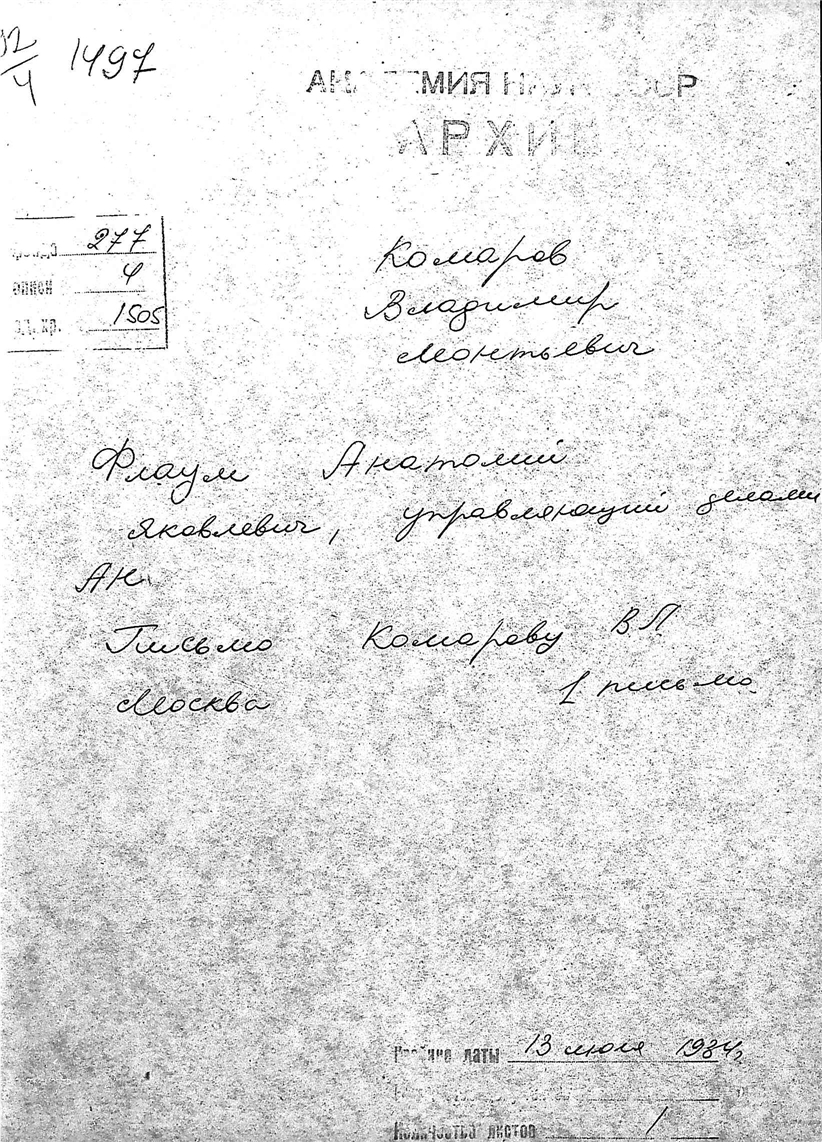 1497
АКАДЕМИЯ НАУК СССР
АРХИВ
фонд 277
описи 4
ед. хр. 1505
Комаров
Владимир
Леонтьевич
Флаум Анатолий
Яковлевич, управляющий делами
АН.
Письмо Комарову В Л.
Москва 1 письмо
Крайние даты 13 июля 1934 г.
Количество листов 1